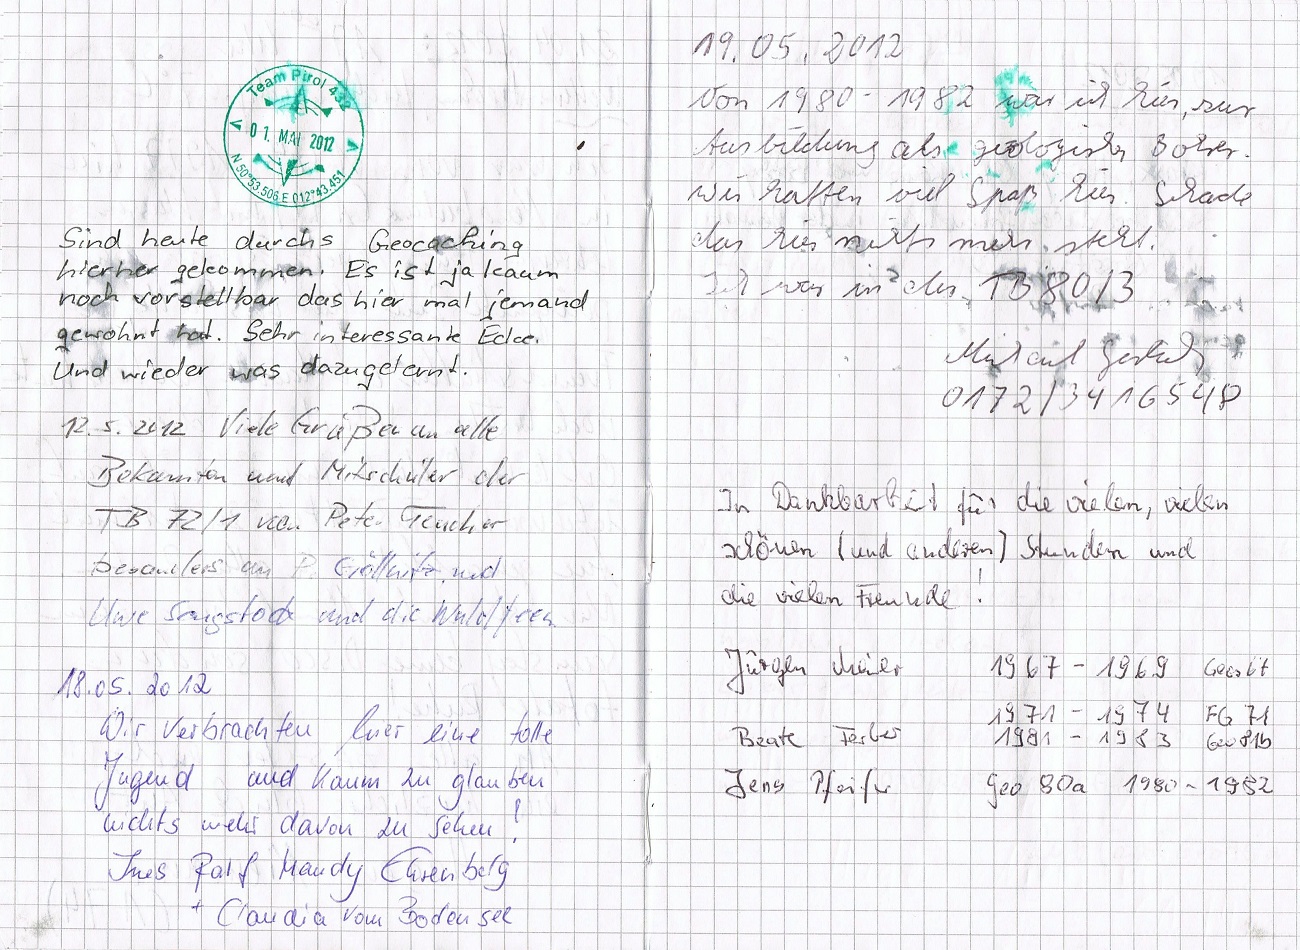 Team Pirol 432
01. MAI 2012
N 50°53.506 E 012°43.451
Sind heute durchs Geocaching
hierher gekommen. Es ist ja kaum
noch vorstellbar das hier mal jemand
gewohnt hat. Sehr interessante Ecke.
Und wieder was dazugelernt.
12.5.2012 Viele Grüße an alle
Bekannten und Mitschüler der
TB 72/1 von Peter Teucher
besonders an P. und
Uwe und die
18.05.2012
Wir verbrachten hier eine tolle
Jugend und kaum zu glauben
nichts mehr davon zu sehen!
Ines Ralf Mandy Ehrenberg
+ Claudia vom Bodensee
19.05.2012
Von 1980 - 1982 war ich hier, zur
Ausbildung als geologischer Bohrer.
Wir hatten viel Spaß hier. Schade
das hier nichts mehr steht.
Ich war in der TB 80/3
0172/3416548
In Dankbarkeit für die vielen, vielen
schönen (und anderen) Stunden und
die vielen Freunde!
Jürgen Meier 1967 - 1969
1971 - 1974 FG 71
Beate Ferber 1981 - 1983 Geo 81b
Jens Pfeifer Geo 80a 1980 - 1982